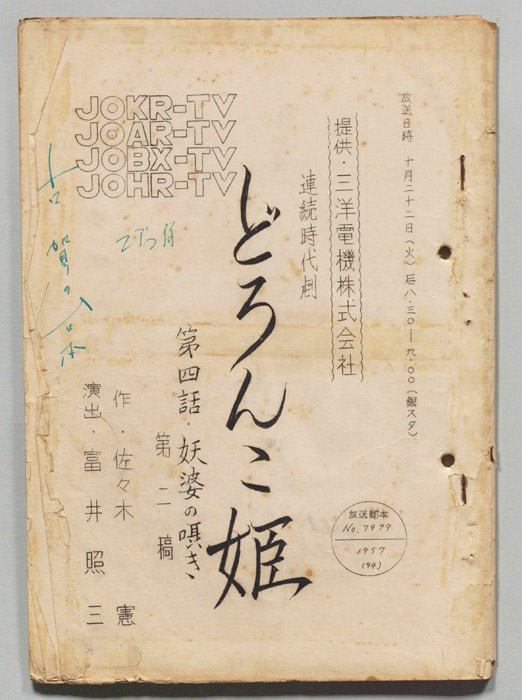 放送日時 十月二十二日(火)后八・三〇―九・〇〇(銀スタ)
提供・三洋電機株式会社
連続時代劇
どろんこ姫
第四話・妖婆の嘆き
第二稿
作・佐々木 憲
演出・富井照三
JOKR-TV
JOAR-TV
JOBX-TV
JOHR-TV
放送脚本
No.7979
1957
(94)